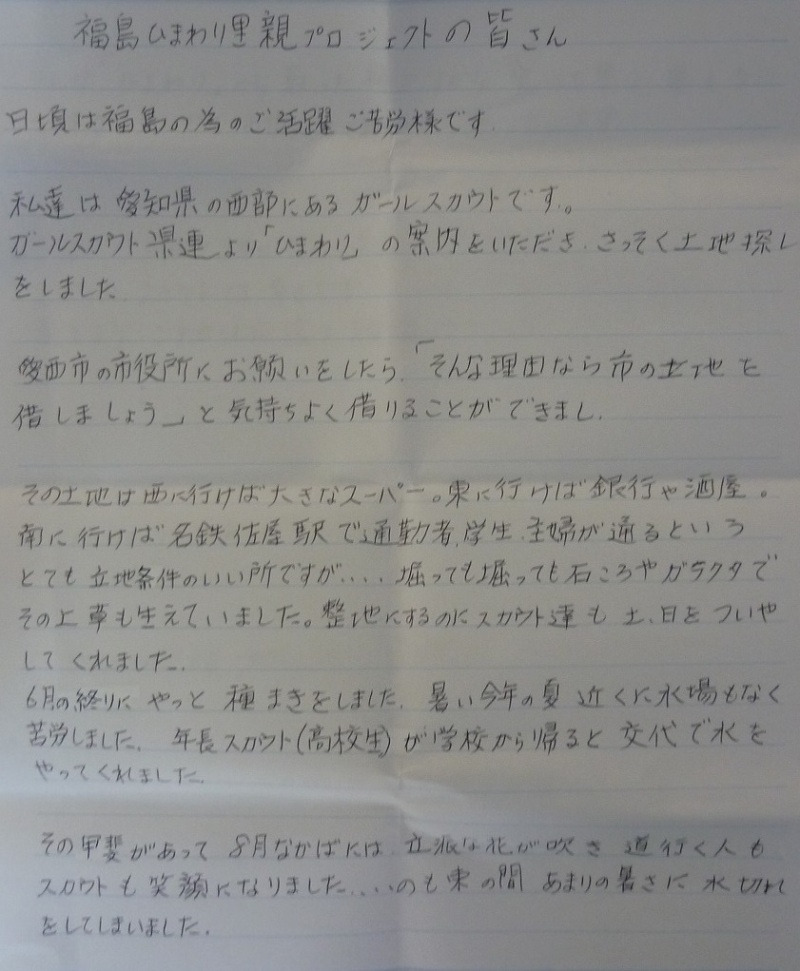 福島ひまわり里親プロジェクトの皆さん
日頃は福島の為のご活躍ご苦労様です.
私達は愛知県の西部にあるガールスカウトです。
ガールスカウト県連より「ひまわり」の案内をいただき、さっそく土地探し
をしました.
愛西市の市役所にお願いをしたら、「そんな理由なら市の土地を
借しましょう」と気持ちよく借りることができまし.
その土地は西に行けば大きなスーパー。東に行けば銀行や酒屋。
南に行けば名鉄佐屋駅で通勤者、学生、主婦が通るという
とても立地条件のいい所ですが....堀っても堀っても石ころやガラクタで
その上草も生えていました。整地にするのにスカウト達も土、日をついや
してくれました.
6月の終りにやっと種まきをしました. 暑い今年の夏近くに水場もなく
苦労しました. 年長スカウト(高校生)が学校から帰ると交代で水を
やってくれました.
その甲斐があって8月なかばには立派な花が吹き道行く人も
スカウトも笑顔になりました....のも束の間あまりの暑さに水切れ
をしてしまいました.